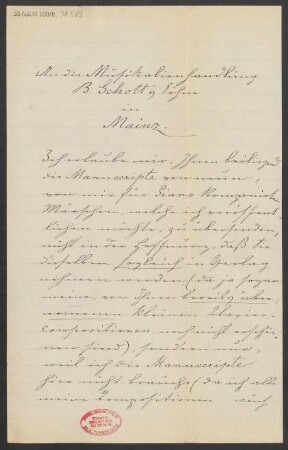 An die Musikalienhandlung
B. Schott's Söhne
in
Mainz.
Ich erlaube mir, Ihnen beiliegend
die Manuscripte von neun,
von mir für Piano komponirten
Märschen, welche ich veröffent-
lichen möchte, zu übersenden,
nicht in der Hoffnung, daß Sie
dieselben sogleich in Verlag
nehmen werden (da ja sogar
meine, von Ihnen bereits über-
nommenen kleinen Clavier-
compositionen noch nicht erschie-
nen sind) sondern
weil ich die Manuscripte
hier nicht brauche (da ich alle
meine Compositionen auch